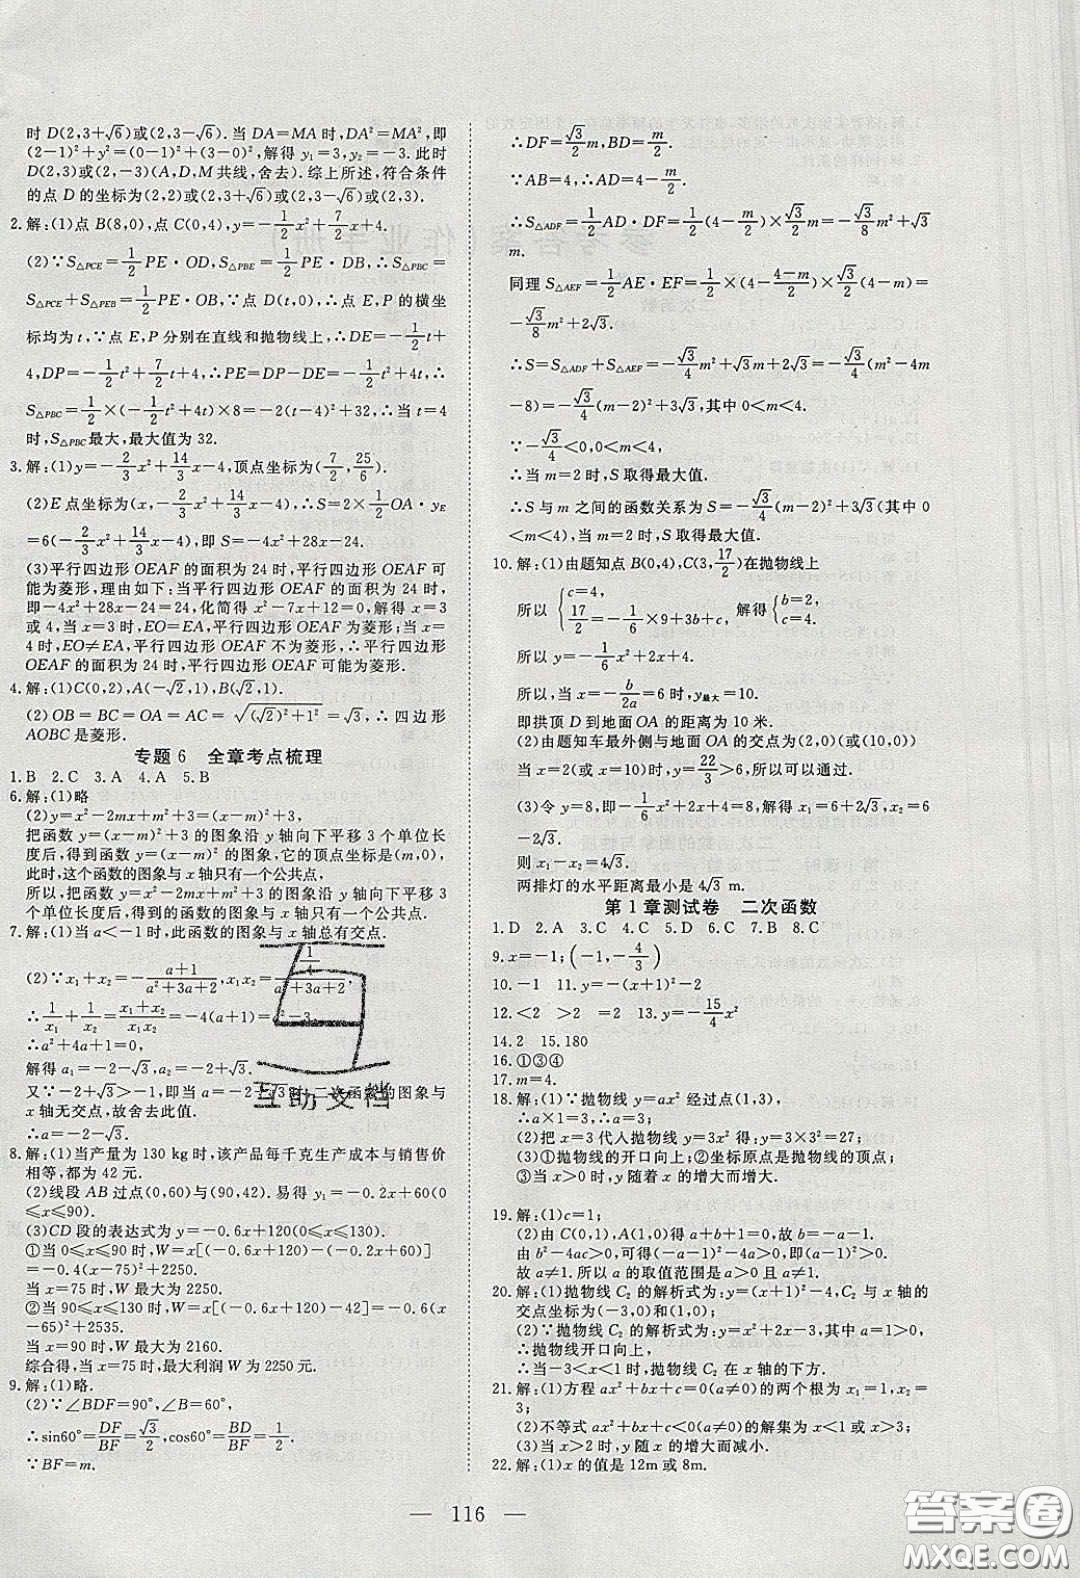 时 D(2,3+√6)或(2,3-√6). 当 DA=MA 时,DA²=MA²,即
(2-1)²+y²=(0-1)²+(3-0)²,解得 y₁=3,y₂=-3. 此时
D(2,3)或(2,3)(A,D,M 共线,舍去). 综上所述,符合条件
的点 D 的坐标为(2,2)或(2,3+√6)或(2,3-√6)或(2,3).
2.解:(1)点 B(8,0),点 C(0,4),y=-1/2x²+7/2x+4.
(2)∵S△PCE=1/2PE·OD,S△PBE=1/2PE·DB,∴S△PBC=
S△PCE+S△PEB=1/2PE·OB,∵点 D(t,0),点 E,P 的横坐
标均为 t,∵点 E,P 分别在直线和抛物线上,∴DE=-1/2t+
4,DP=-1/2t²+7/2t+4,∴PE=DP-DE=-1/2t²+4t,∴
S△PBC=1/2×(-1/2t²+4t)×8=-2(t-4)²+32,∴当 t=4
时,S△PBC最大,最大值为 32.
3.解:(1)y=-2/3x²+14/3x-4,顶点坐标为(7/2,25/6).
(2)E 点坐标为(x,-2/3x²+14/3x-4),∴S=2×1/2OA·yE
=6(-2/3x²+14/3x-4),即 S=-4x²+28x-24.
(3)平行四边形 OEAF 的面积为 24 时,平行四边形 OEAF 可
能为菱形,理由如下:当平行四边形 OEAF 的面积为 24 时,
即-4x²+28x-24=24,化简得 x²-7x+12=0,解得 x=3
或 4,当 x=3 时,EO=EA,平行四边形 OEAF 为菱形;当 x=
4 时,EO≠EA,平行四边形 OEAF 不为菱形,∴平行四边形
OEAF 的面积为 24 时,平行四边形 OEAF 可能为菱形.
4.解:(1)C(0,2),A(-√2,1),B(√2,1).
(2)OB=BC=OA=AC=√((√2)²+1²)=√3,∴四边形
AOBC 是菱形.
专题 6 全章考点梳理
1.B 2.C 3.A 4.A 5.B
6.解:(1)略
(2)y=x²-2mx+m²+3=(x-m)²+3,
把函数 y=(x-m)²+3 的图象沿 y 轴向下平移 3 个单位长
度后,得到函数 y=(x-m)² 的图象,它的顶点坐标是(m,0),
此时,这个函数的图象与 x 轴只有一个公共点.
所以,把函数 y=x²-2mx+m²+3 的图象沿 y 轴向下平移
3 个单位长度后,得到的函数的图象与 x 轴只有一个公共点.
7.解:(1)当 a<-1 时,此函数的图象与 x 轴总有交点.
(2)∵x₁+x₂=-(a+1)/(a²+3a+2),x₁x₂=(1/4)/(a²+3a+2),
∴1/x₁+1/x₂=(x₁+x₂)/(x₁x₂)=-4(a+1)=a²-3.
∴a²+4a+1=0,
解得 a₁=-2-√3,a₂=-2+√3.
又∵-2+√3>-1,即当 a=-2+√3时,二次函数的图象与
x 轴无交点,故舍去此值.
∴a=-2-√3.
8.解:(1)当产量为 130 kg 时,该产品每千克生产成本与销售价
相等,都为 42 元.
(2)线段 AB 过点(0,60)与(90,42). 易得 y₁=-0.2x+60
(0≤x≤90).
(3)CD 段的表达式为 y=-0.6x+120(0≤x≤130).
①当 0≤x≤90 时,W=x[(-0.6x+120)-(-0.2x+60)]
=-0.4(x-75)²+2250.
当 x=75 时,W 最大为 2250.
②当 90≤x≤130 时,W=x[(-0.6x+120)-42]=-0.6(x
-65)²+2535.
当 x=90 时,W 最大为 2160.
综合得,当 x=75 时,最大利润 W 为 2250 元.
9.解:(1)略.
(2)∵∠BDF=90°,∠B=60°,
∴sin60°=DF/BF=√3/2,cos60°=BD/BF=1/2.
∵BF=m.
∴DF=√3/2m,BD=m/2.
∵AB=4,∴AD=4-m/2.
∴S△ADF=1/2AD·DF=1/2(4-m/2)√3/2m=-√3/8m²+√3
m.
同理 S△AEF=1/2AE·EF=1/2(4-(4-m)/2)√3/2(4-m)=
-√3/8m²+2√3.
∴S=S△ADF+S△AEF=-√3/4m²+√3m+2√3=-√3/4(m²-4m
-8)=-√3/4(m-2)²+3√3,其中 0<m<4.
∵-√3/4<0,0<m<4,
∴当 m=2 时,S 取得最大值.
∴S 与 m 之间的函数关系为 S=-√3/4(m-2)²+3√3(其中 0
<m<4),当 m=2 时,S 取得最大值.
10.解:(1)由题知点 B(0,4),C(3,17/2)在抛物线上
所以{c=4, 17/2=-1/6×9+3b+c, 解得{b=2, c=4.
所以 y=-1/6x²+2x+4.
所以,当 x=-b/2a=6 时,y最大=10.
即拱顶 D 到地面 OA 的距离为 10 米.
(2)由题知车最外侧与地面 OA 的交点为(2,0)(或(10,0))
当 x=2(或 x=10)时,y=22/3>6,所以可以通过.
(3)令 y=8,即-1/6x²+2x+4=8,解得 x₁=6+2√3,x₂=6
-2√3.
则 x₁-x₂=4√3.
两排灯的水平距离最小是 4√3 m.
第 1 章测试卷 二次函数
1.D 2.A 3.C 4.C 5.D 6.C 7.B 8.C
9.x=-1;(-1,-4/3)
10.-1 11.y=-(x+1)²-2
12.<2 >2 =2 13.y=-15/4x²
14.2 15.180
16.①③④
17.m=4.
18.解:(1)∵抛物线 y=ax² 经过点(1,3),
∴a×1=3,∴a=3.
(2)把 x=3 代入抛物线 y=3x² 得:y=3×3²=27.
(3)①抛物线的开口向上;②坐标原点是抛物线的顶点;
③当 x>0 时,y 随着 x 的增大而增大.
19.解:(1)c=1;
(2)由 C(0,1),A(1,0)得 a+b+1=0,故 b=-a-1.
由 b²-4ac>0,可得(-a-1)²-4a>0,即(a-1)²>0.
故 a≠1. 所以 a 的取值范围是 a>0 且 a≠1.
20.解:(1)抛物线 C₂ 的解析式为:y=(x+1)²-4,与 x 轴的
交点坐标为(-3,0)和(1,0);
(2)∵抛物线 C₂ 的解析式为:y=(x+1)²-4,
∴抛物线开口向上,
∴当-3<x<1 时,抛物线 C₂ 在 x 轴的下方.
21.解:(1)方程 ax²+bx+c=0(a≠0)的两个根为 x₁=1,x₂=
3;
(2)不等式 ax²+bx+c<0(a≠0)的解集为 x<1 或 x>3;
(3)当 x>2 时,y 随 x 的增大而减小.
22.解:(1)x 的值是 12m 或 8m.
— 116 —
互助文档
答案圈
MXQE.COM